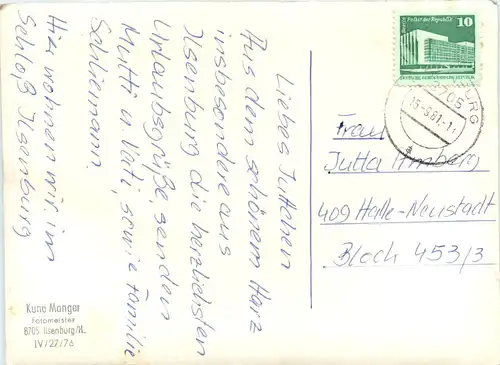 Liebes Juttchen
Aus dem schönem Harz
insbesondere aus
Ilsenburg die herzlichsten
Urlaubsgrüße, senden
Mutti u. Vati, sowie Familie
Schliemann
Hier wohnen wir im
Schloß Ilsenburg
10
Palast der Republik
BURG
3705
15-9.81-11
a
Frau
Jutta Amberg
409 Halle-Neustadt
Block 453/3
Kuno Manger
Fotomeister
8705 Ilsenburg/H.
IV/27/76